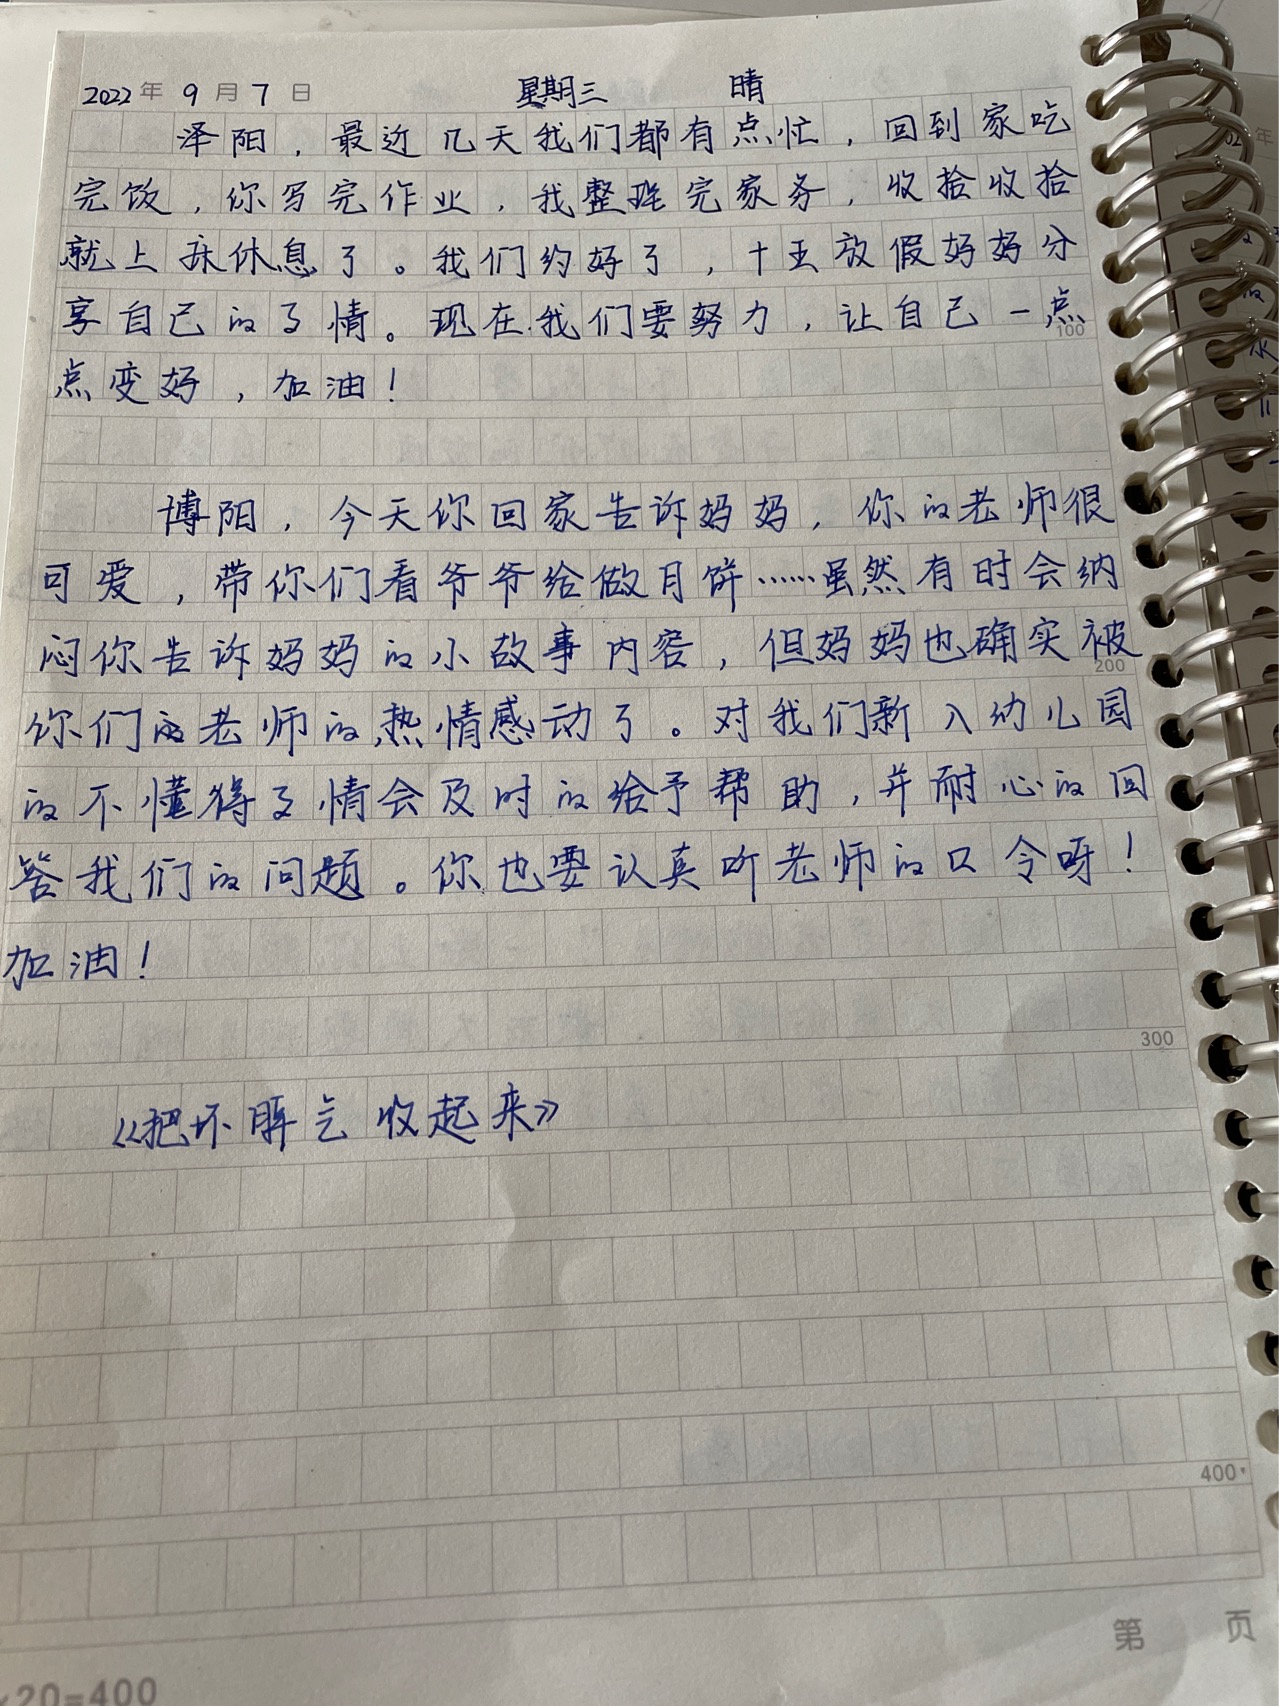 2022年 9月 7日 星期三 晴
泽阳，最近几天我们都有点忙，回到家吃
完饭，你写完作业，我整理完家务，收拾收拾
就上床休息了。我们约好了，十五放假好好分
享自己的事情。现在我们要努力，让自己一点
100
点变好，加油！
博阳，今天你回家告诉妈妈，你的老师很
可爱，带你们看爷爷给做月饼……虽然有时会纳
闷你告诉妈妈的小故事内容，但妈妈也确实被
200
你们的老师的热情感动了。对我们新入幼儿园
的不懂得事情会及时的给予帮助，并耐心的回
答我们的问题。你也要认真听老师的口令呀！
加油！
300
《把坏脾气收起来》
400
第 页
20=400